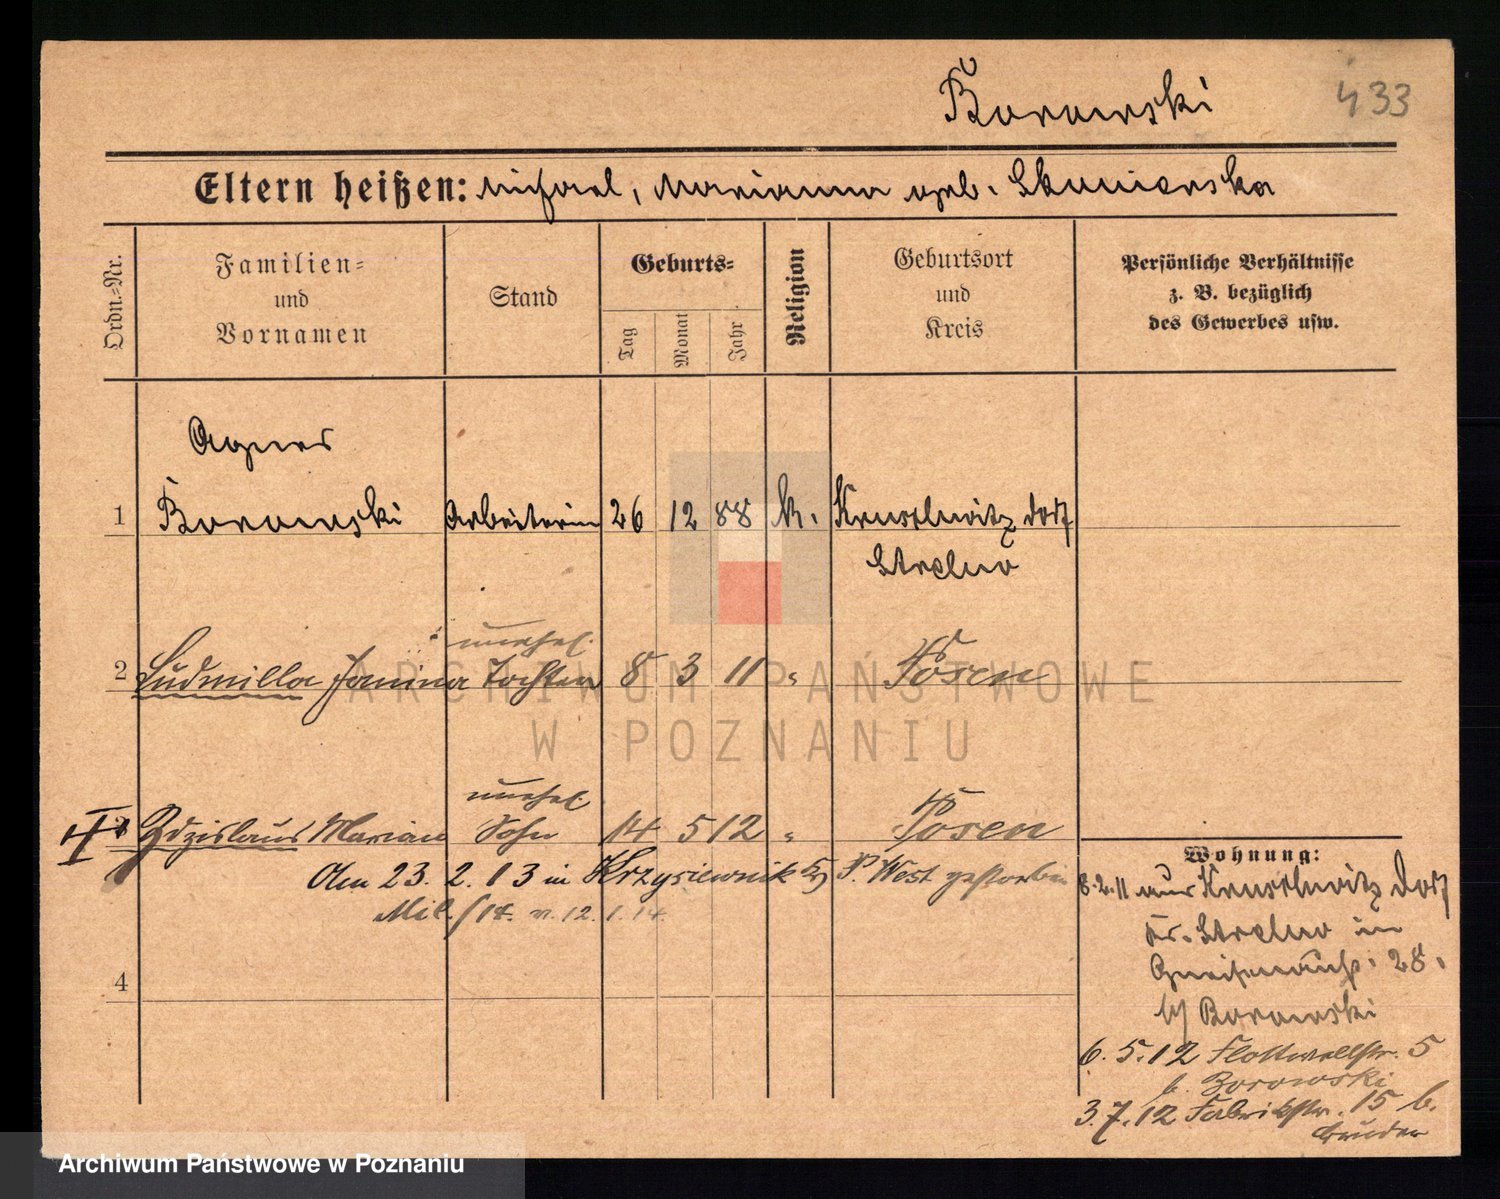 Borowski
433
Eltern heißen: Michael, Marianna geb. Skunierska
Ordn.-Nr.
Familien-
und
Vornamen
Stand
Geburts-
Tag
Monat
Jahr
Religion
Geburtsort
und
Kreis
Persönliche Verhältnisse
z. B. bezüglich
des Gewerbes usw.
Agnes
1 Borowski Arbeiterin 26 12 88 k. Kruschwitz Dorf
Strelno
unehel.
2 Ludmilla Janina Tochter 8 3 11 " Posen
ARCHIWUM PAŃSTWOWE
W POZNANIU
unehel.
Zdzislaus Marian Sohn 14 5 12 " Posen
Am 23. 2. 13 in Krzysiewnik Krs. P. West gestorben
Mil. /14. v. 12. 1. 14.
4
Wohnung:
8.2.11 aus Kruschwitz Dorf
Kr. Strelno in
Gneisenaustr. 28.
b/ Borowski
6. 5. 12 Flottwellstr. 5
b. Borowski
3. 7. 12 Fabrikstr. 15 b.
Bruder
Archiwum Państwowe w Poznaniu